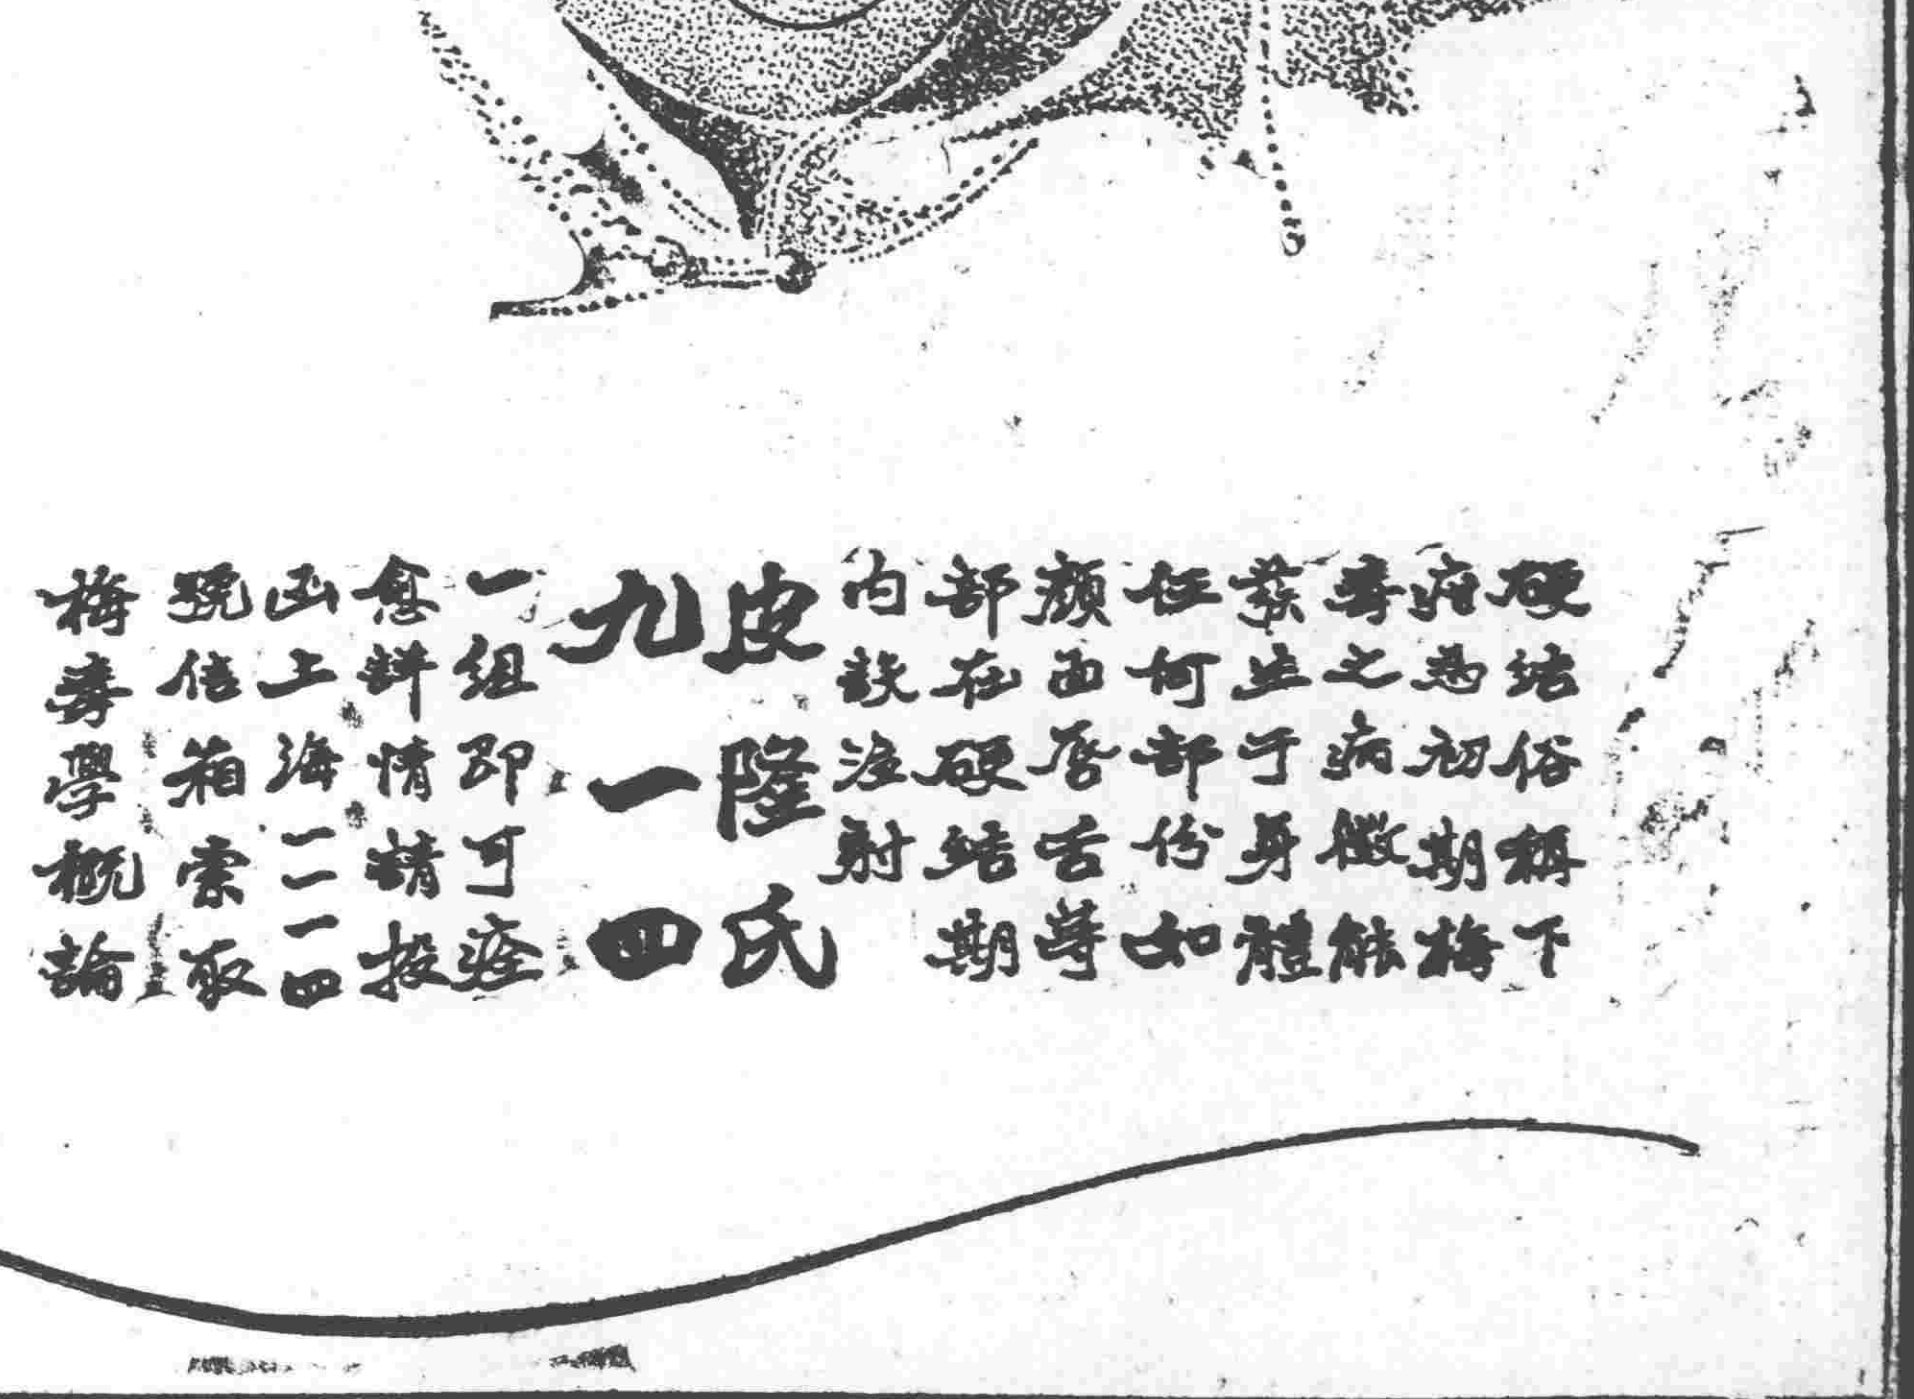 硬結俗稱下
疳為初期梅
毒之病徵能
發生于身體
任何部份如
顏面唇舌等
部在硬結期
內設注射
皮隆氏
九一四
一組即可痊
愈詳情請投
函上海一一一四
號信箱索取
梅毒學概論